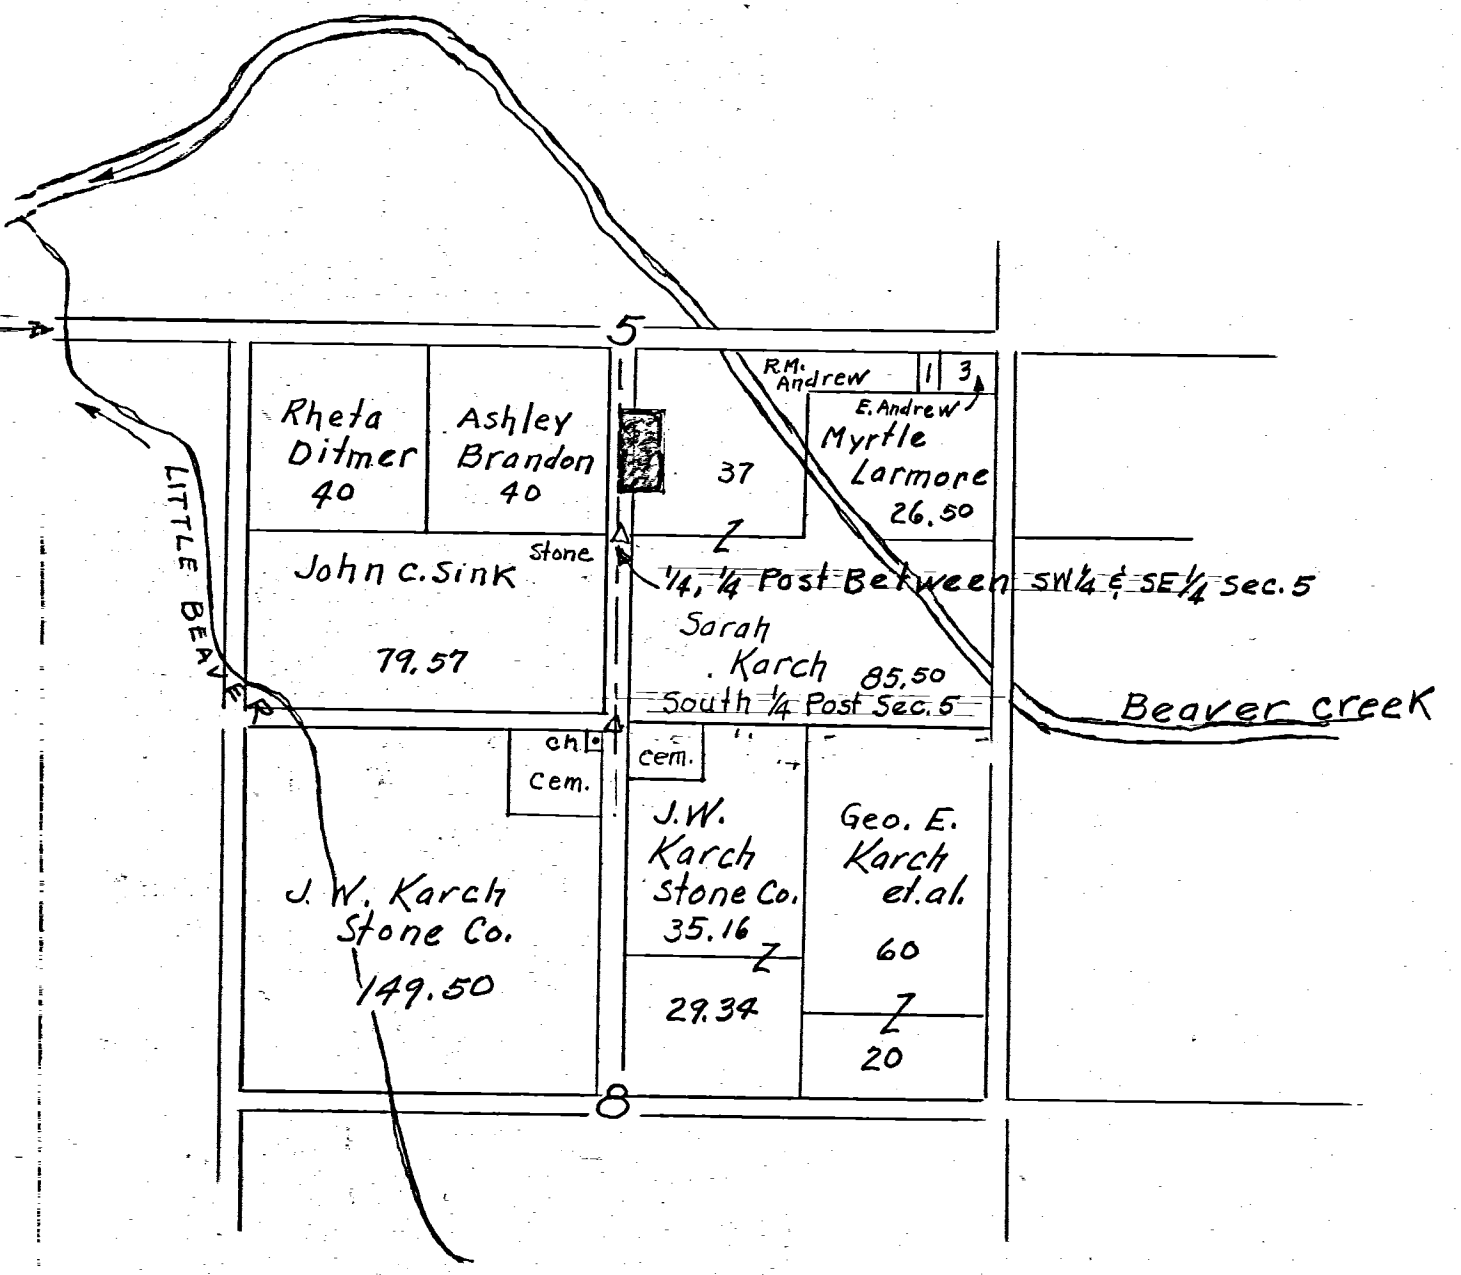 5
R.M.
Andrew
1
3
E. Andrew
Rheta
Ditmer
40
Ashley
Brandon
40
37
Myrtle
Larmore
26.50
LITTLE BEAVER
Stone
John C. Sink
79.57
1/4, 1/4 Post Between SW 1/4 & SE 1/4 Sec. 5
Sarah
Karch
85.50
South 1/4 Post Sec. 5
Beaver creek
ch
cem.
cem.
J. W. Karch
Stone Co.
149.50
J.W.
Karch
Stone Co.
35.16
29.34
Geo. E.
Karch
et.al.
60
20
8